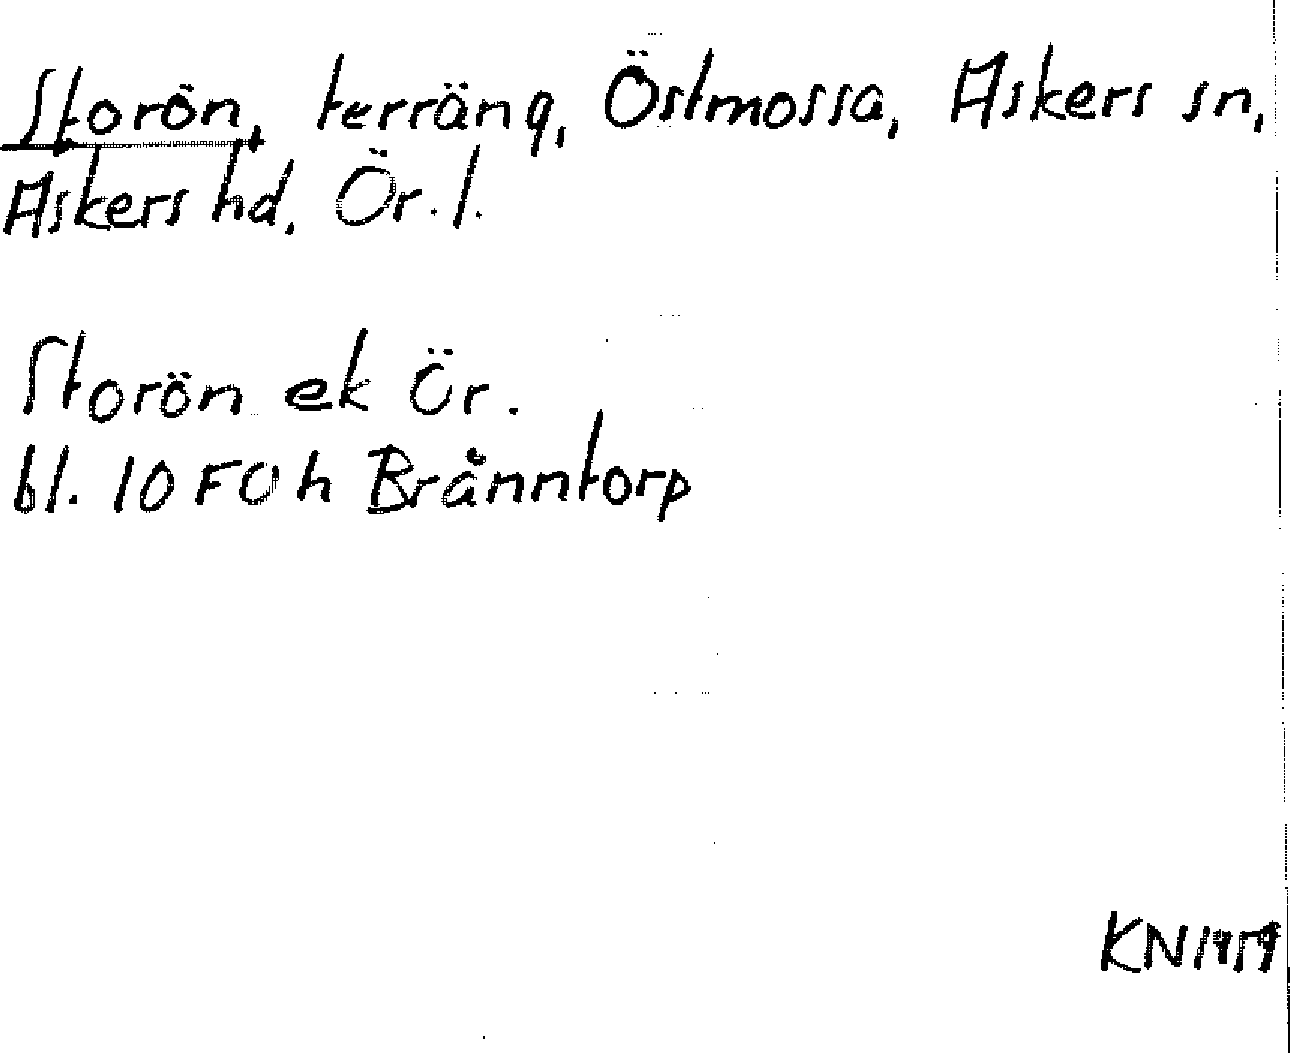 Storön, terräng, Östmossa, Askers sn,
Askers hd, Ör. l.
Storön ek Ör.
bl. 10 F0h Brånntorp
KN 1959